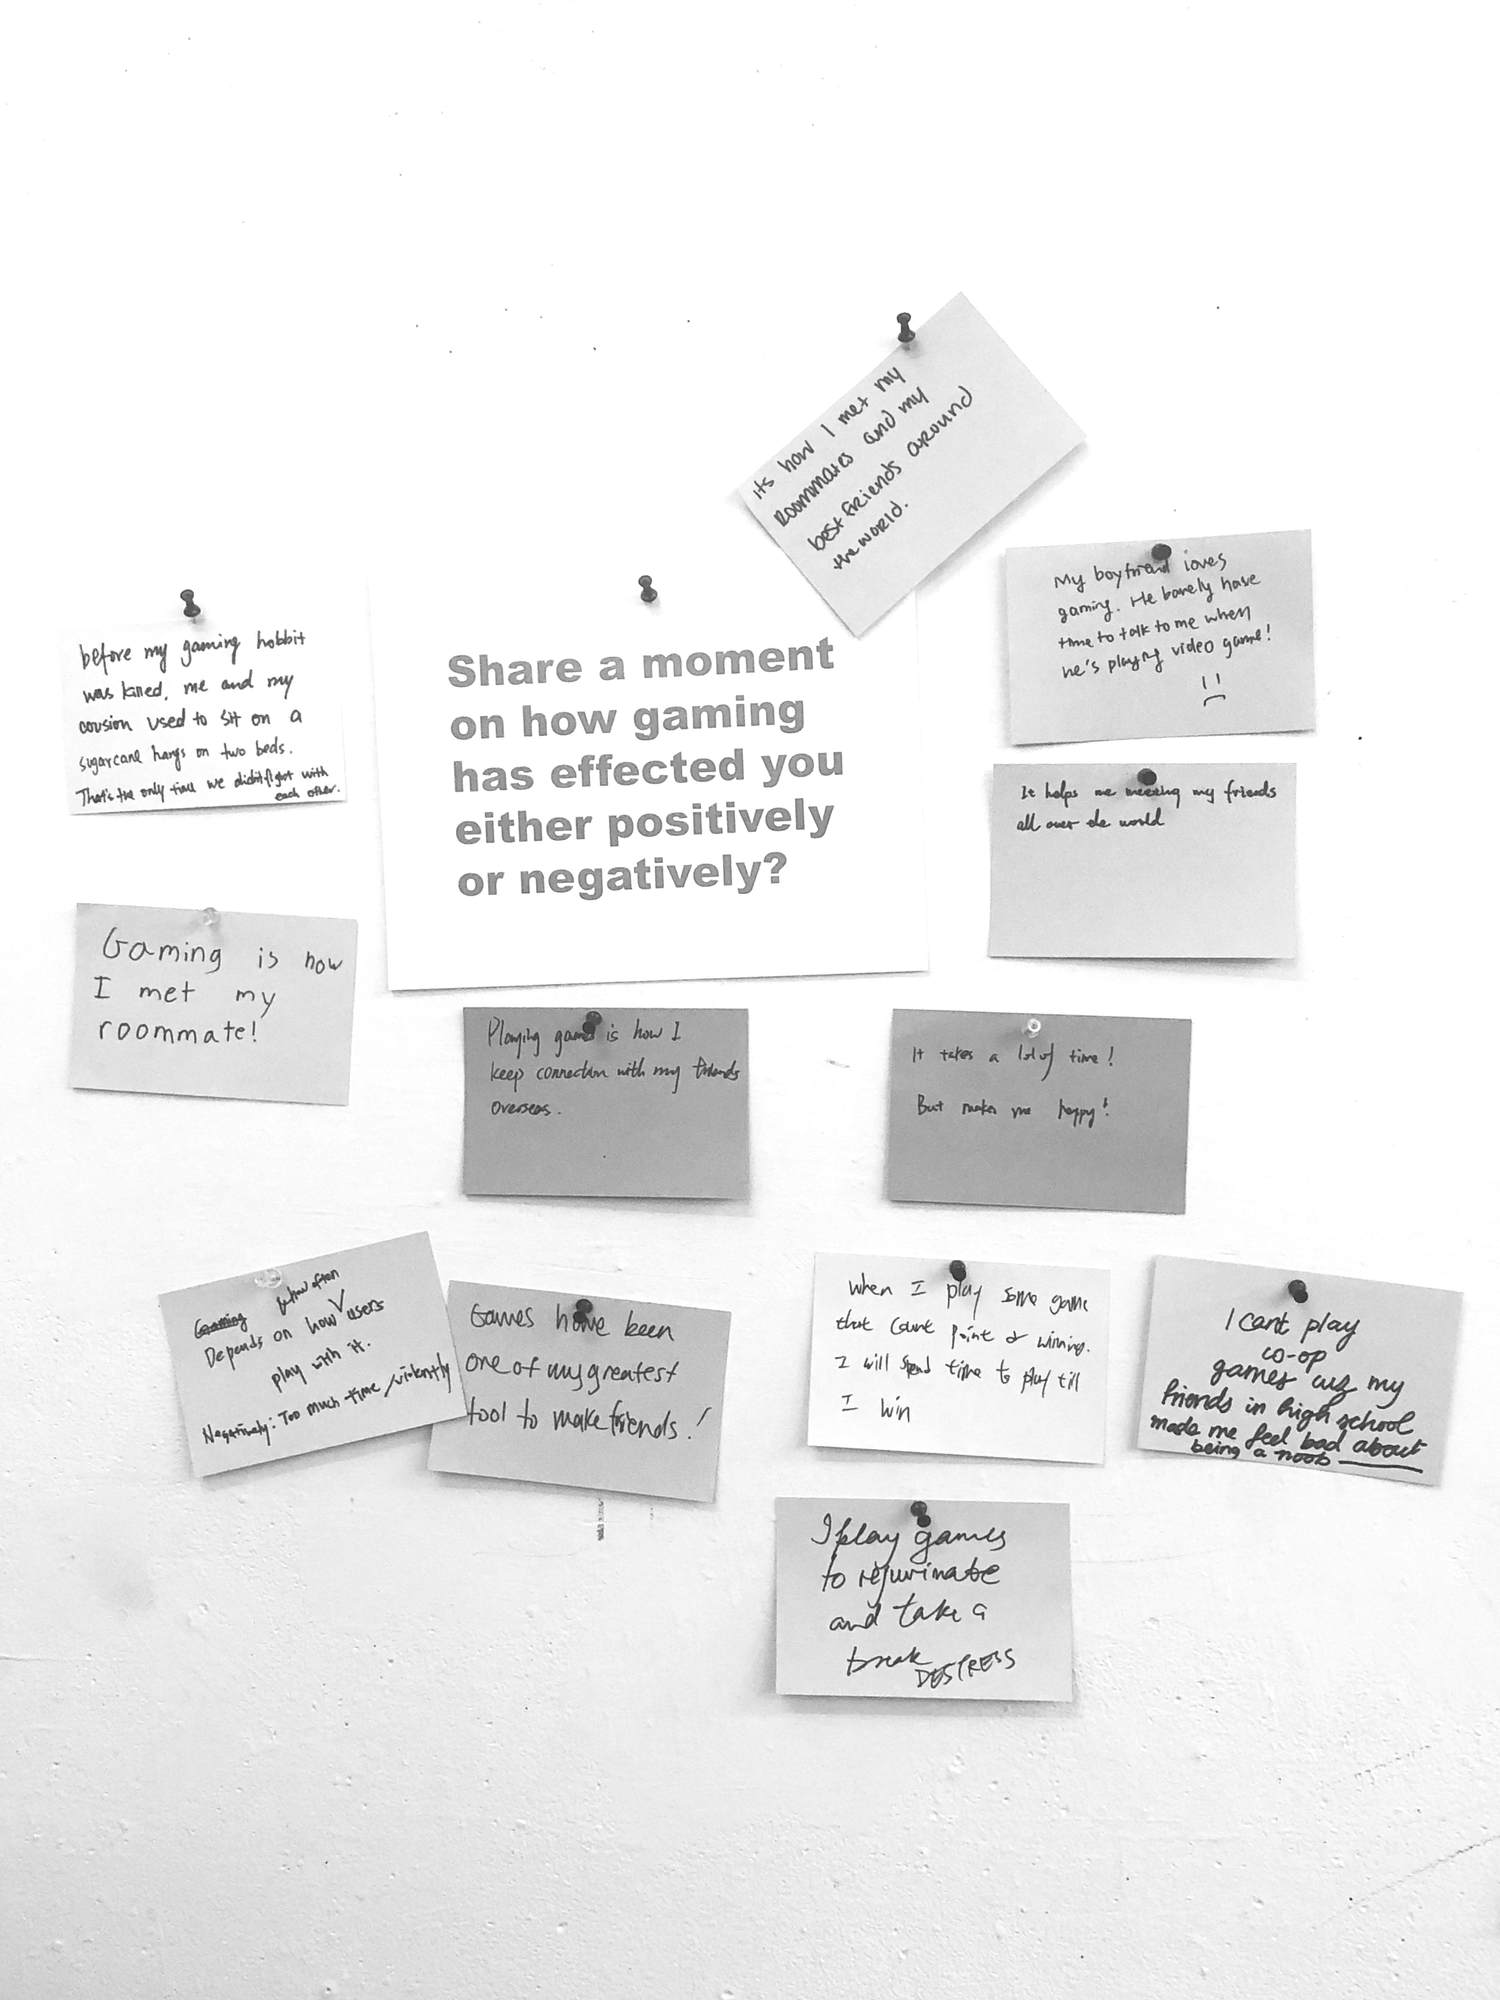 its how I met my
roommates and my
best friends around
the world.
My boyfriend loves
gaming. He barely have
time to talk to me when
he's playing video game!
before my gaming hobbit
was killed, me and my
cousion used to sit on a
sugarcane hangs on two beds.
That's the only time we didn't fight with
each other.
Share a moment
on how gaming
has effected you
either positively
or negatively?
It helps me meeting my friends
all over the world
Gaming is how
I met my
roommate!
Playing games is how I
keep connection with my friends
overseas.
It takes a lot of time!
But makes me happy!
Gaming & how often
Depends on how users
play with it.
Negatively: Too much time/violently
Games have been
one of my greatest
tool to make friends!
When I play some game
that count point & winning.
I will spend time to play till
I win
I cant play
co-op
games cuz my
friends in high school
made me feel bad about
being a noob
I play games
to rejuvinate
and take a
break DESTRESS